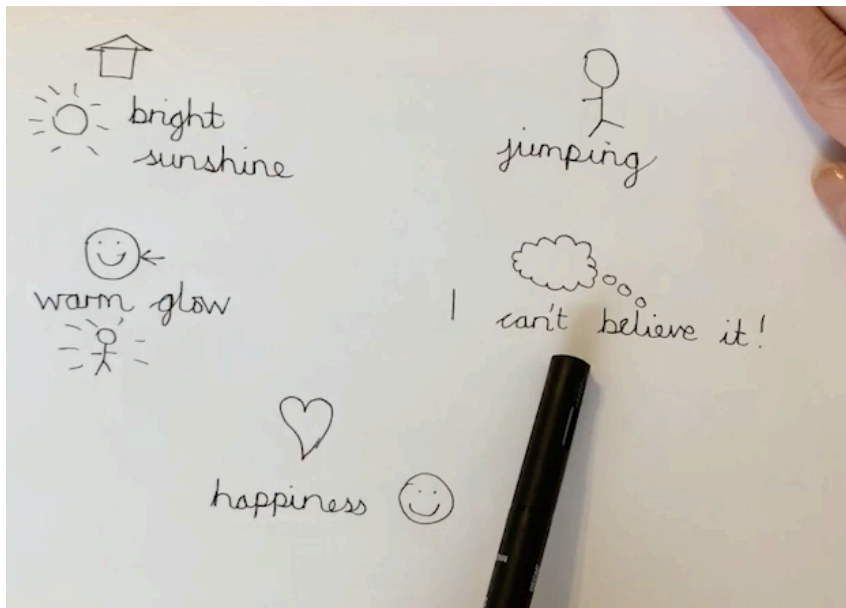 bright
sunshine
jumping
warm glow
I can't believe it!
happiness